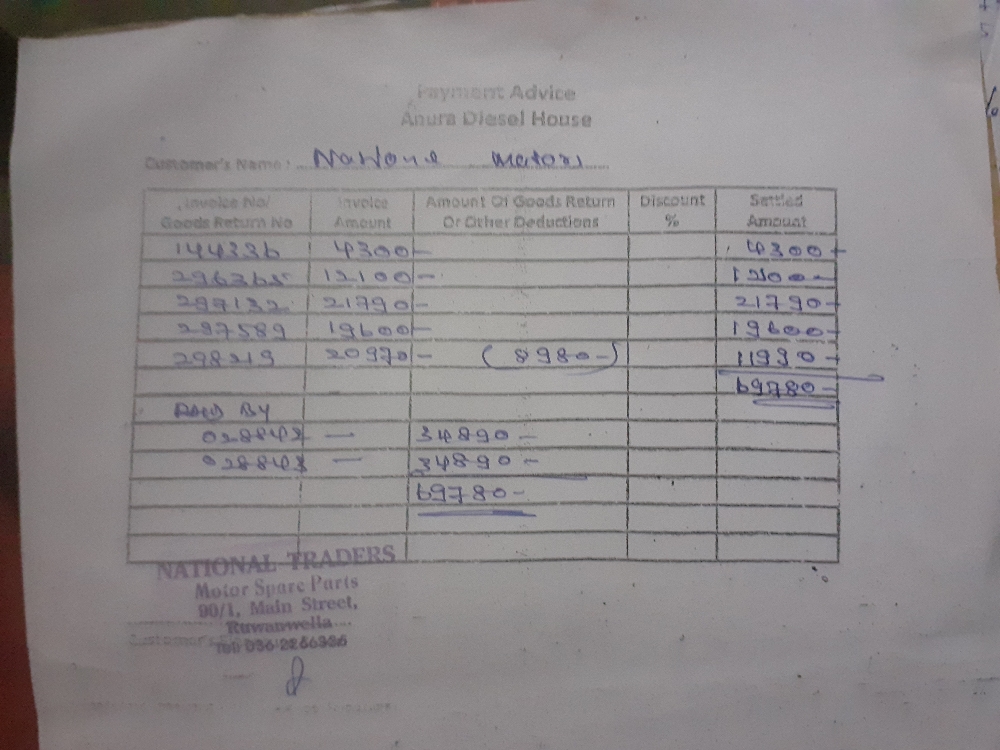 Payment Advice
Anura Diesel House
Customer's Name: Motors
Invoice No/ Goods Return No Invoice Amount Amount Of Goods Return Or Other Deductions Discount % Settled Amount
144336 4300/- 4300-
296365 12100/- 12100-
297132 21790/- 21790-
297589 19600/- 19600-
298219 20970/- (8980-) 11990-
69780-
By
028842 — 34890-
028843 — 34890-
69780-
NATIONAL TRADERS
Motor Spare Parts
90/1, Main Street,
Ruwanwella
Customer's
Tel: 036 2266936